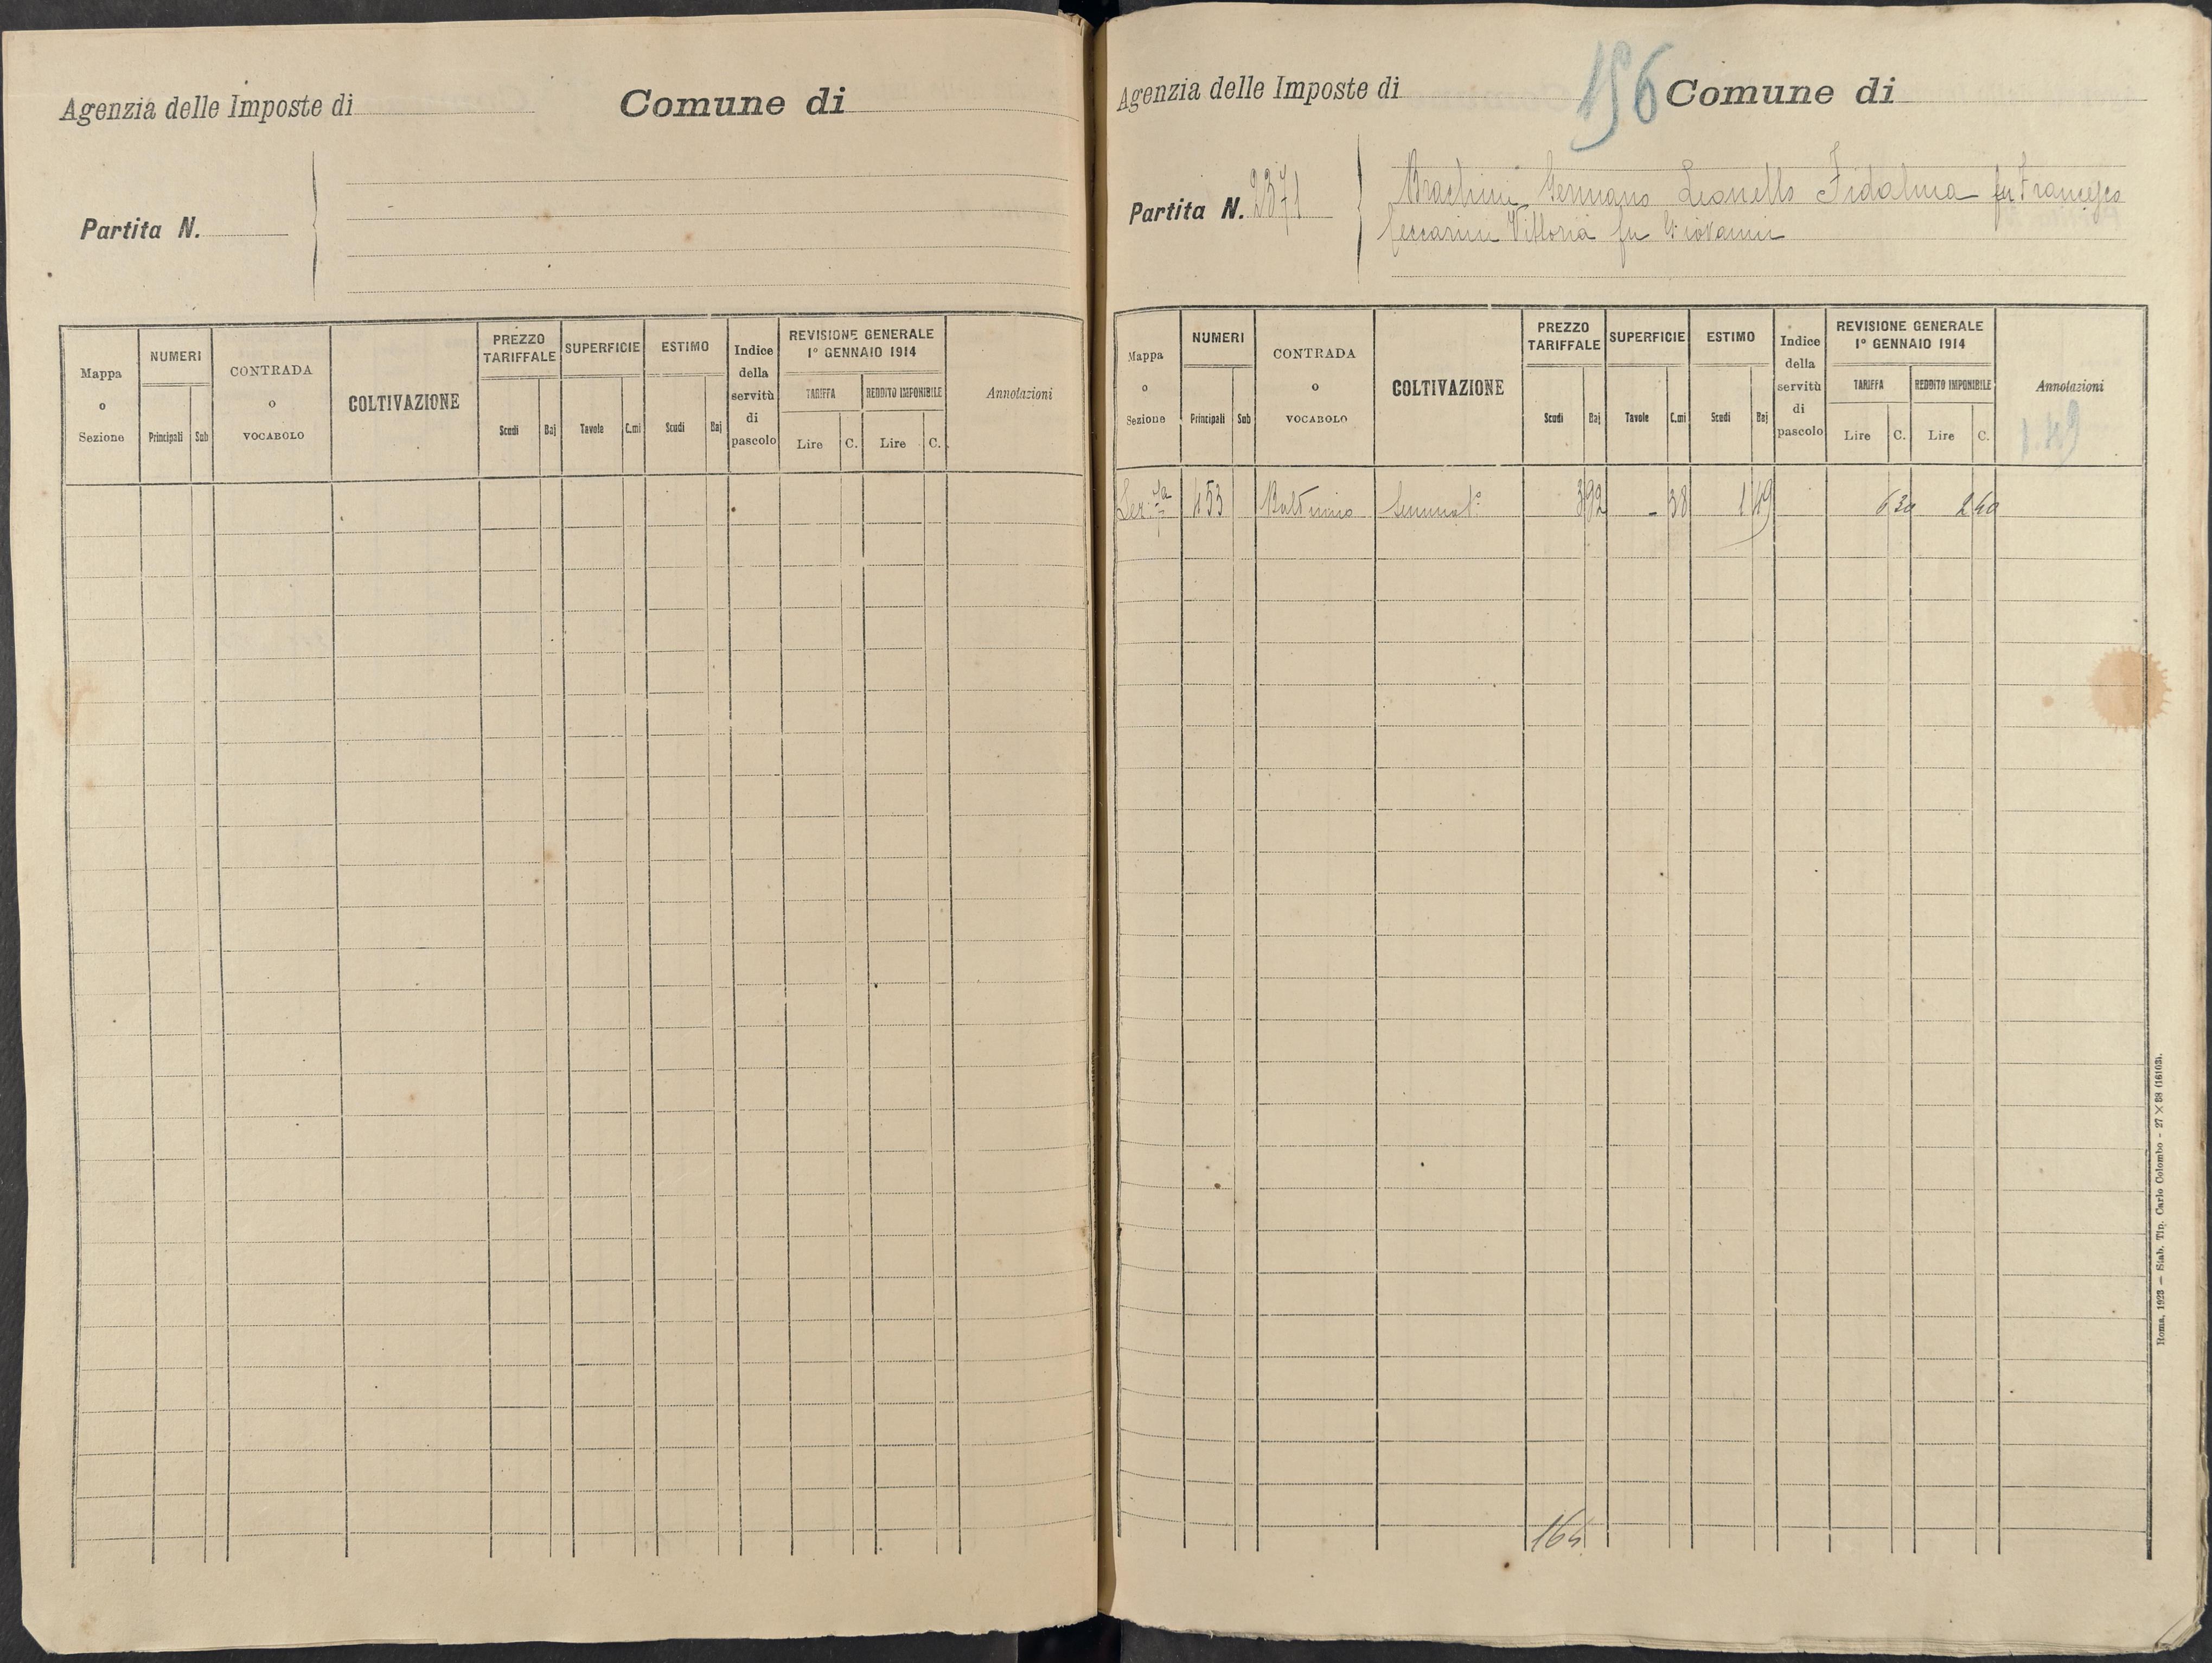 Agenzia delle Imposte di
Comune di
Partita N.
Mappa o Sezione
NUMERI
Principali
Sub
CONTRADA o VOCABOLO
COLTIVAZIONE
PREZZO TARIFFALE
Scudi
Baj
SUPERFICIE
Tavole
C.mi
ESTIMO
Scudi
Baj
Indice della servitù di pascolo
REVISIONE GENERALE
1° GENNAIO 1914
TARIFFA
REDDITO IMPONIBILE
Lire
C.
Lire
C.
Annotazioni
Agenzia delle Imposte di
196
Comune di
Partita N. 2371
Germano Leonello Fidalma fu Francesco
Ceccarini Vittoria fu Giovanni
Mappa o Sezione
NUMERI
Principali
Sub
CONTRADA o VOCABOLO
COLTIVAZIONE
PREZZO TARIFFALE
Scudi
Baj
SUPERFICIE
Tavole
C.mi
ESTIMO
Scudi
Baj
Indice della servitù di pascolo
REVISIONE GENERALE
1° GENNAIO 1914
TARIFFA
REDDITO IMPONIBILE
Lire
C.
Lire
C.
Annotazioni
1.49
Sez. 453 Seminat.° 3 92 - 38 1 49 6 30 2 40
Roma, 1923 — Stab. Tip. Carlo Colombo - 27 × 38 (16103).